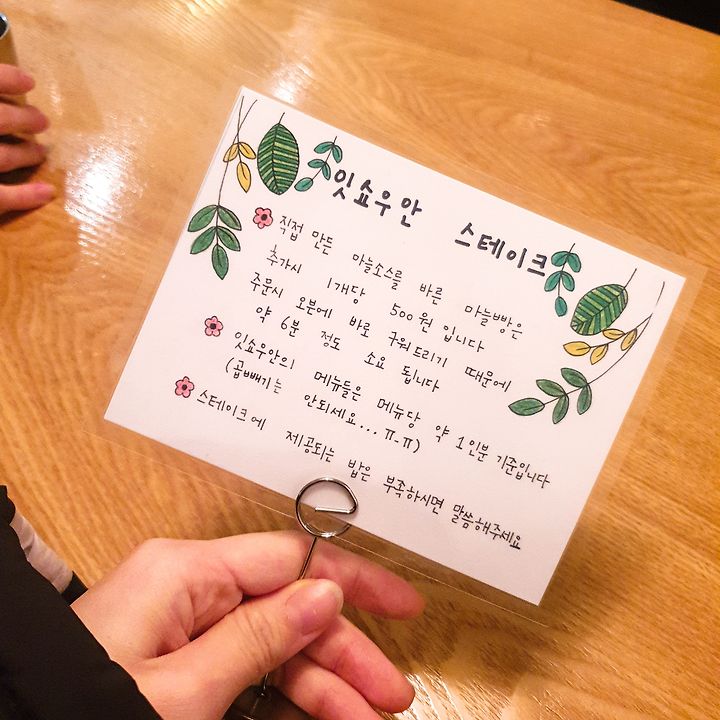 잇쇼우안 스테이크
직접 만든 마늘소스를 바른 마늘빵은
추가시 1개당 500원 입니다
주문시 오븐에 바로 구워드리기 때문에
약 6분 정도 소요 됩니다
잇쇼우안의 메뉴들은 메뉴당 약 1인분 기준입니다
(곱빼기는 안되세요... ㅠ.ㅠ)
스테이크에 제공되는 밥은 부족하시면 말씀해주세요